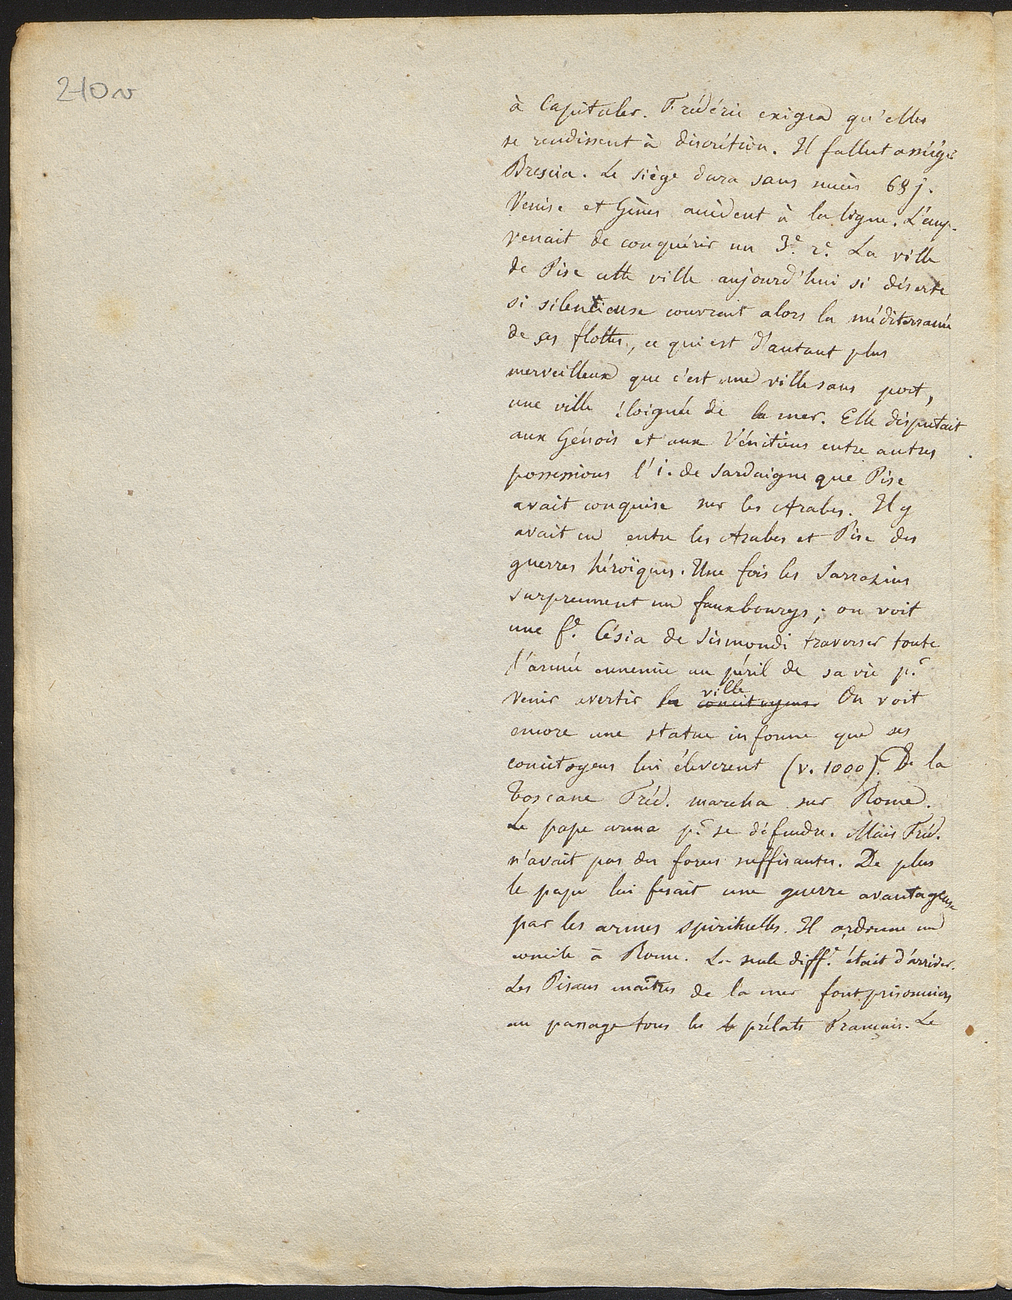 210 v
à Capituler. Frédéric exigea qu'elles
se rendissent à discrétion. Il fallut assiéger
Brescia. Le siège dura sans succès 68 j.
Venise et Gènes accèdent à la ligue. L'emp.
venait de conquérir un 3e r. La ville
de Pise cette ville aujourd'hui si déserte
si silencieuse couvrait alors la méditerranée
de ses flottes, ce qui est d'autant plus
merveilleux que c'est une ville sans port,
une ville éloignée de la mer. Elle disputait
aux Génois et aux Vénitiens entre autres
possessions l'i. de Sardaigne que Pise
avait conquise sur les Arabes. Il y
avait eu entre les Arabes et Pise des
guerres héroïques. Une fois les Sarrazins
surprennent un fauxbourgs ; on voit
une fe. Césia de Sismondi traverser toute
l'armée ennemie au péril de sa vie pr
venir avertir la ville concitoyens On voit
encore une statue informe que ses
concitoyens lui éleverent (v. 1000). De la
Toscane Fréd. marcha sur Rome.
Le pape arma pr se défendre. Mais Fréd.
n'avait pas des forces suffisantes. De plus
le pape lui fesait une guerre avantageuse
par les armes spirituelles. Il ordonne un
concile à Rome. La seule diffé. était d'arriver.
Les Pisans maîtres de la mer font prisonniers
au passage tous les prélats Français. Le